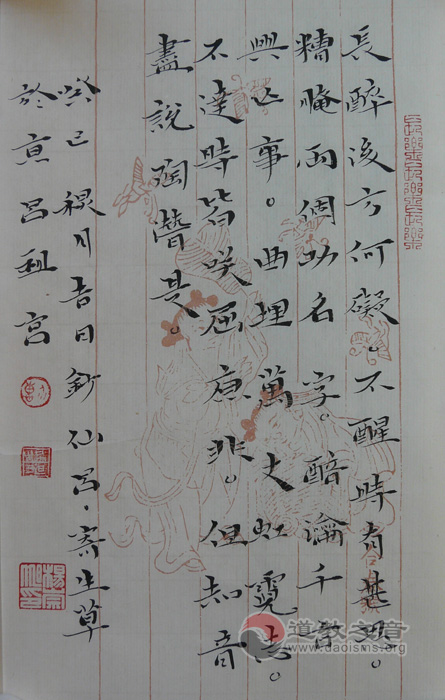 長醉後方何礙。不醒時有甚思。
糟腌兩個功名字。醅瀹千古
興亡事。曲埋萬丈虹霓志。
不達時皆咲屈原非。但知音
盡說陶潛是。
癸巳禊月吉日鈔仙呂、寄生草
於京呂祖宮
道教之音
www.daoisms.org